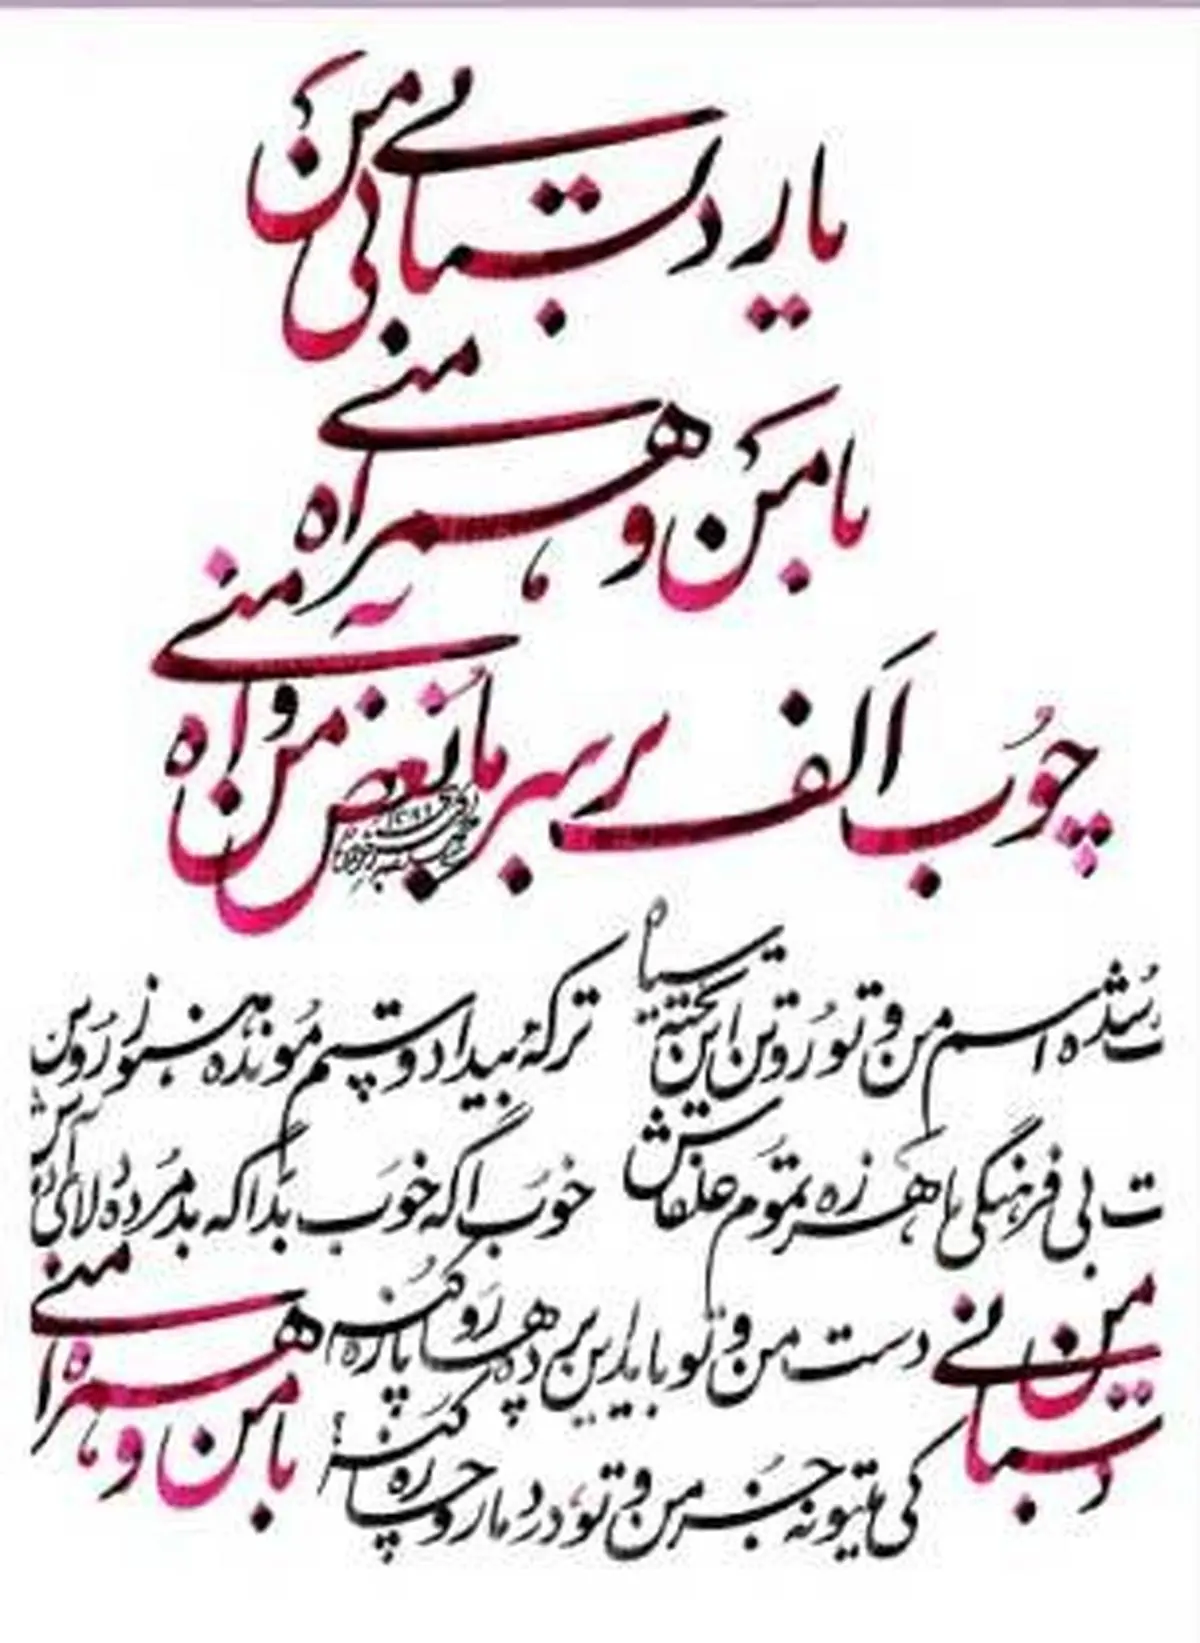 یار دبستانی من
با من و همراه منی
چوب الف بر سر ما بغض من و آه منی
شده اسم من و تو رو تن این تخته سیاه
ترکهٔ بیداد و ستم مونده هنوز رو تن
ت بی فرهنگی ما هرزه تموم علفاش
خوب اگه خوب بد اگه بد مرده دلای آدماش
دست من و تو باید این پرده ها رو پاره کنه
کی میتونه جز من و تو درد ما رو چاره کنه؟
دبستانی من
با من و همراه منی